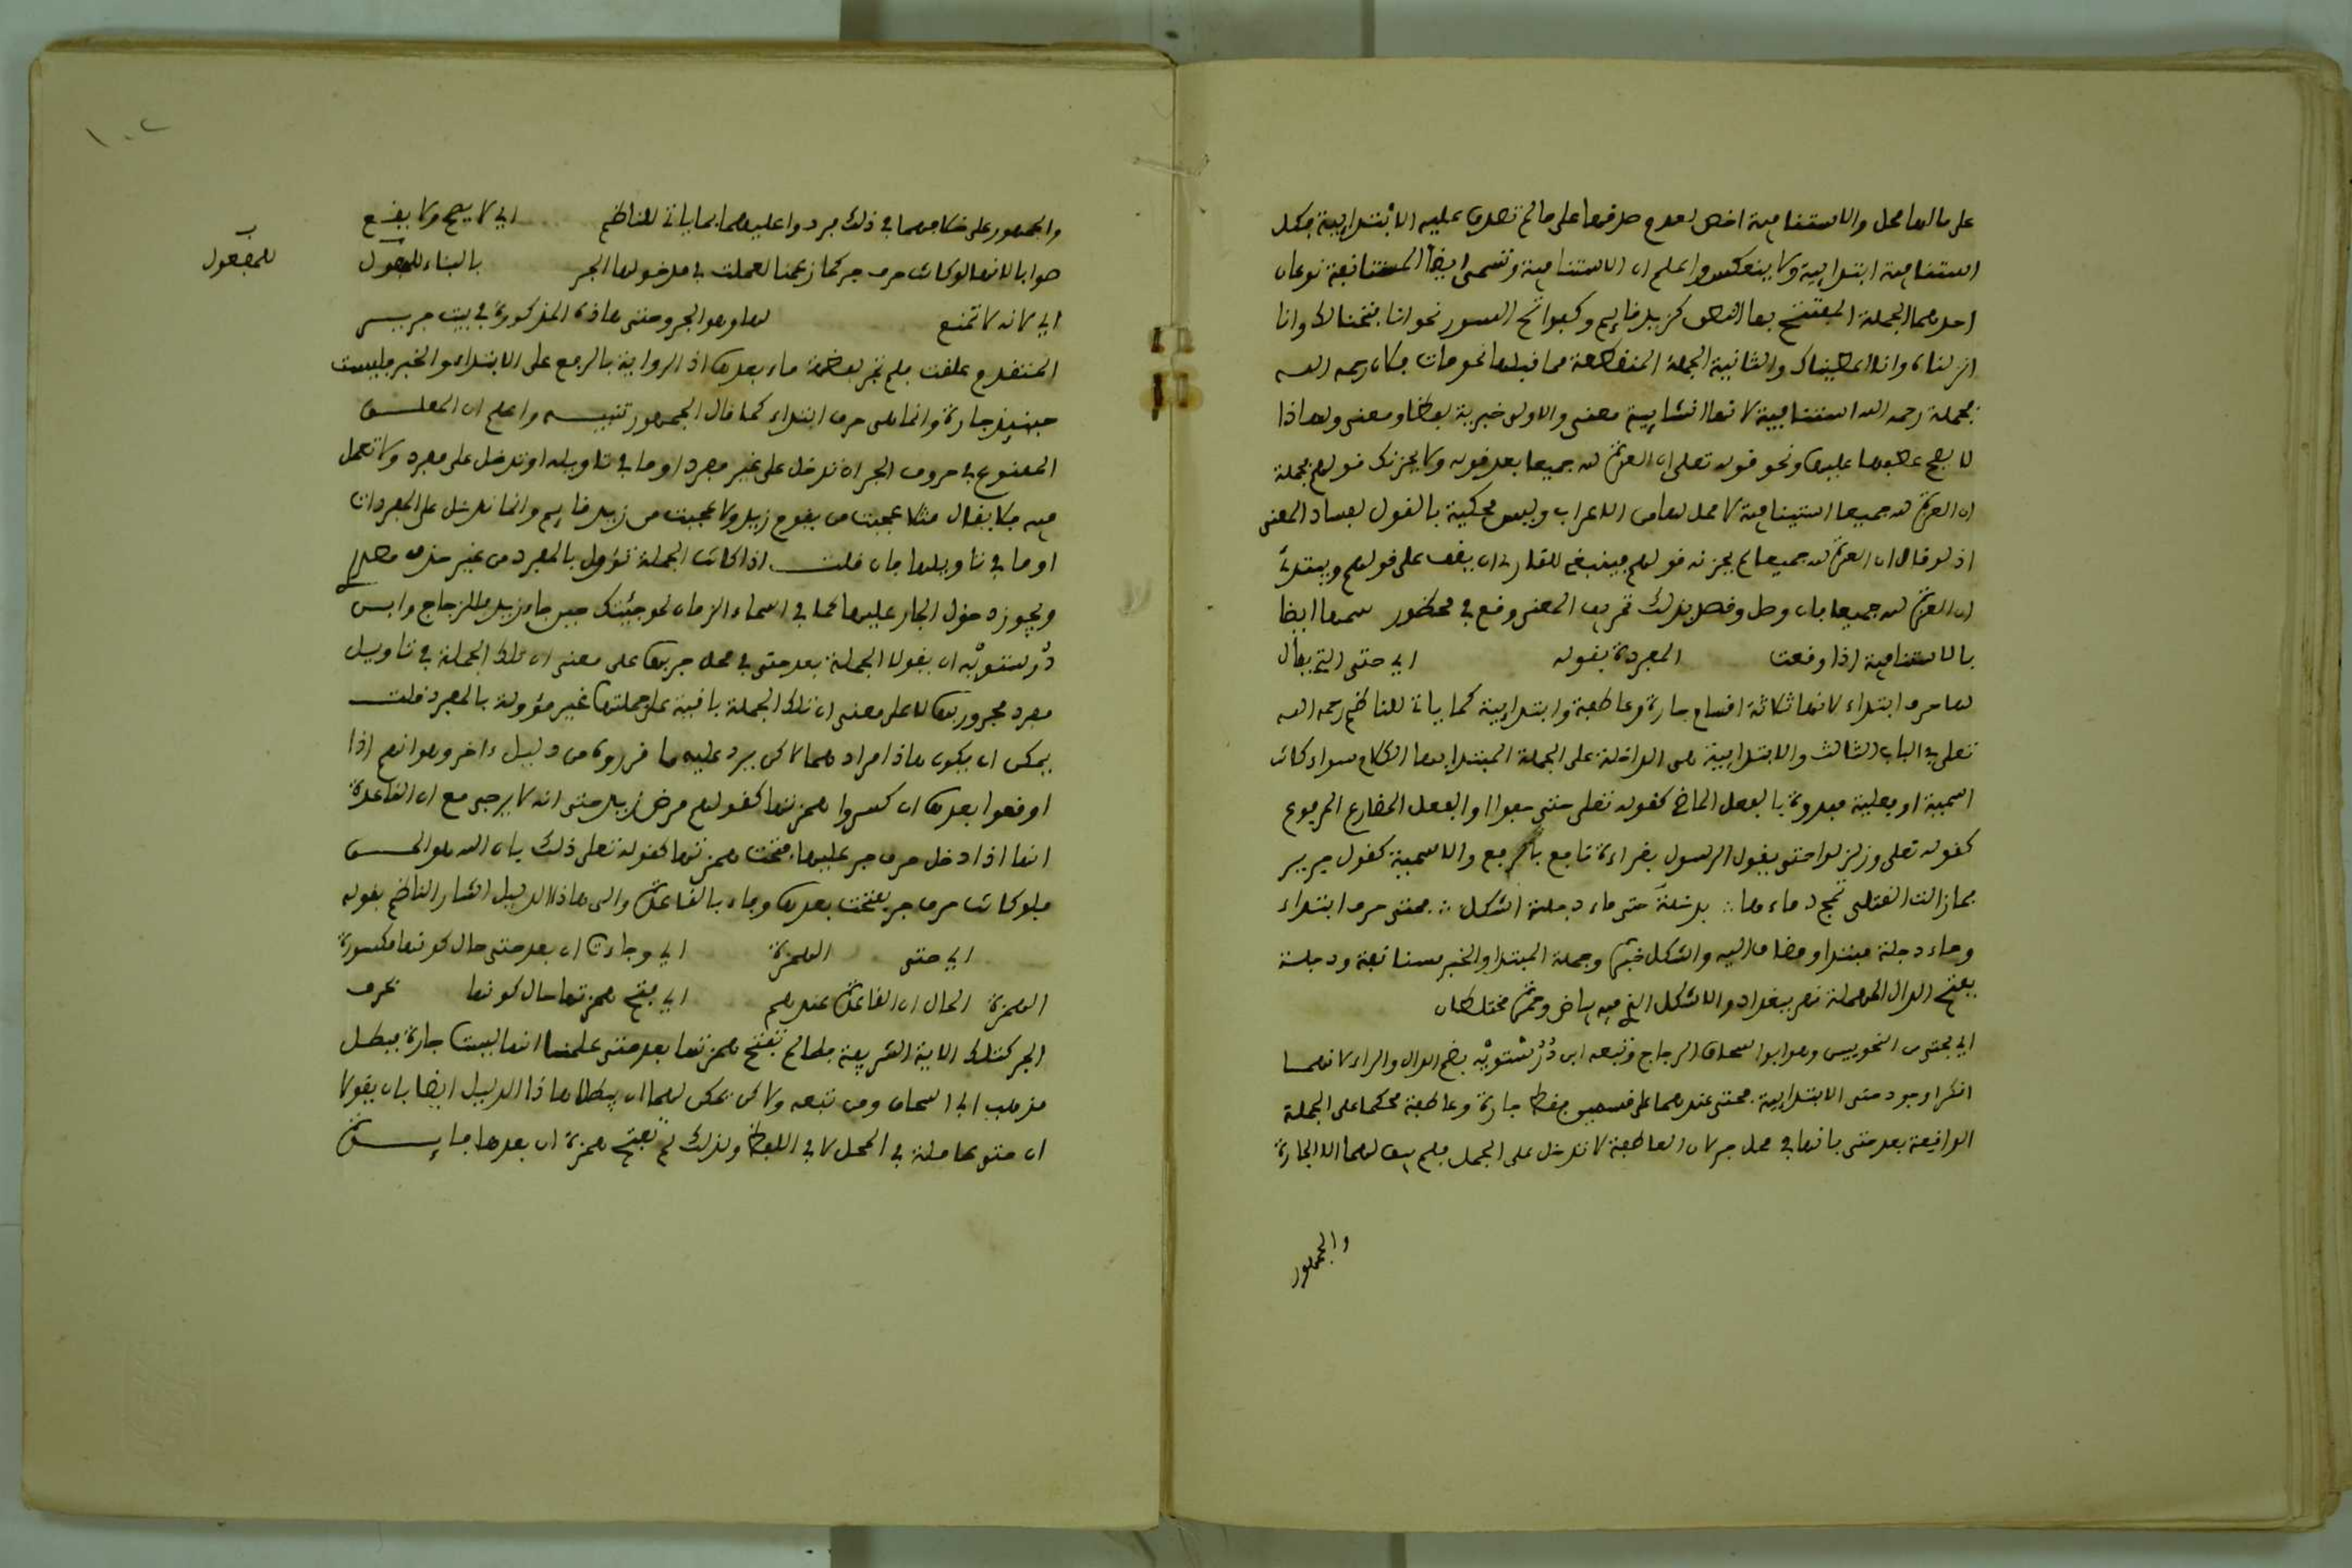 على ما لها محل والاستئنافية اخص لعدم صدقها على ما لم تصدق عليه الابتدائية فكل
استئنافية ابتدائية ولا ينعكس واعلم ان الاستئنافية وتسمى ايضا المستانفة نوعان
احدهما الجملة المفتتح بها النطق كزيد قايم وكفواتح السور نحو انا فتحنا لك وانا
انزلناه وانا اعطيناك والثانية الجملة المنقطعة مما قبلها نحو مات فلان رحمه الله
فجملة رحمه الله استئنافية لانها انشايية معنى والاولى خبرية لفظا ومعنى ولهاذا
لا يصح عطفها عليها ونحو قوله تعلى ان العزة لله جميعا بعد قوله ولا يحزنك قولهم فجملة
ان العزة لله جميعا استينافية لا محل لها من الاعراب وليس محكية بالقول لفساد المعنى
اذ لو قال ان العزة لله جميعا لم يحزنه قولهم فينبغي للقارئ ان يقف على قولهم ويبتدئ
ان العزة لله جميعا فان وصل وقصد بذلك تحريف المعنى وقع في محظور سمها ايضا
بالاستئنافية اذا وقعت المجردة بقوله اي حتى التي يقال
لها حرف ابتداء لانها ثلاثة اقسام جارة وعاطفة وابتدايية كما ياتي للناظم رحمه الله
تعلى في الباب الثالث والابتدايية هي الداخلة على الجملة المبتدا بها الكلام سواء كانت
اسمية او فعلية مبدوة بالفعل الماضي كقوله تعلى حتى عفوا او الفعل المضارع المرفوع
كقوله تعلى وزلزلوا حتى يقول الرسول بقراءة نافع بالرفع والاسمية كقول جرير
فما زالت القتلى تمج دماءها ∴ بدجلة حتى ماء دجلة اشكل ∴ فحتى حرف ابتداء
وماء دجلة مبتدا ومضاف اليه واشكل خبره وجملة المبتدا والخبر مستانفة ودجلة
بفتح الدال المهملة نهر ببغداد والاشكل الذي فيه بياض وحمرة مختلطان
اي بحتى من النحويين وهو ابو اسحاق الزجاج وتبعه ابن دُرُسْتويْه بضم الدال والراء لانهما
انكرا وجود حتى الابتدايية فحتى عندهما على قسمين فقط جارة وعاطفة فحكما على الجملة
الواقعة بعد حتى بانها في محل جر لان العاطفة لا تدخل على الجمل فلم يبق لهما الا الجارة
والجمهور
١٠٢
والجمهور على خلافهما في ذلك فردوا عليهما بما ياتي للناظم اي لا يصح ولا يقع
صوابا لانها لو كانت حرف جر كما زعمنا لعملت في مدخولها الجر بالبناء للمفعول
للمفعول
اي لانه لا تمنع لها وهو الجر وحتى هاذه المذكورة في بيت جرير
المتقدم علقت فلم تجر لفظة ماء بعدها اذ الرواية بالرفع على الابتداء والخبر فليست
حينيذ جارة وانما هي حرف ابتداء كما قال الجمهور تنبيه واعلم ان المعلق
الممنوع في حروف الجر ان تدخل على غير مفرد او ما في تاويله او تدخل على مفرد ولا تعمل
فيه فلا يقال مثلا عجبت من يقوم زيد ولا عجبت من زيد قايم وانما تدخل على المفردات
او ما في تاويلها فان قلت اذا كانت الجملة تؤول بالمفرد من غير حذف
ويجوز دخول الجار عليها كما في اسماء الزمان نحو جئتك حين جاء زيد فللزجاج وابن
دُرستويْه ان يقولا الجملة بعد حتى في محل جر بها على معنى ان تلك الجملة في تاويل
مفرد مجرور بها لا على معنى ان تلك الجملة باقية على جملتها غير مؤولة بالمفرد قلت
يمكن ان يكون هاذا مرادهما لاكن يرد عليه ما قرروه من دليل ءاخر وهو انهم اذا
اوقعوا بعدها ان كسروا همزتها كقولهم مرض زيد حتى انه لا يرجى مع ان القاعدة
انها اذا دخل حرف جر عليها فتحت همزتها كقوله تعلى ذلك بان الله هو الحق
فلو كانت حرف جر لفتحت بعدها وفاء بالقاعدة والى هاذا الدليل اشار الناظم بقوله
اي حتى الهمزة اي وجاءت ان بعد حتى حال كونها مكسورة
الهمزة الحال ان القاعدة عندهم اي بفتح همزتها حال كونها بحرف
الجر كتلك الاية الشريفة فلما لم تفتح همزتها بعد حتى علمنا انها ليست جارة فبطل
مذهب ابي اسحاق ومن تبعه ولاكن يمكن لهما ان يبطلا هاذا الدليل ايضا بان يقولا
ان حتى عاملة في المحل لا في اللفظ ولذلك لم تفتح همزة ان بعدها